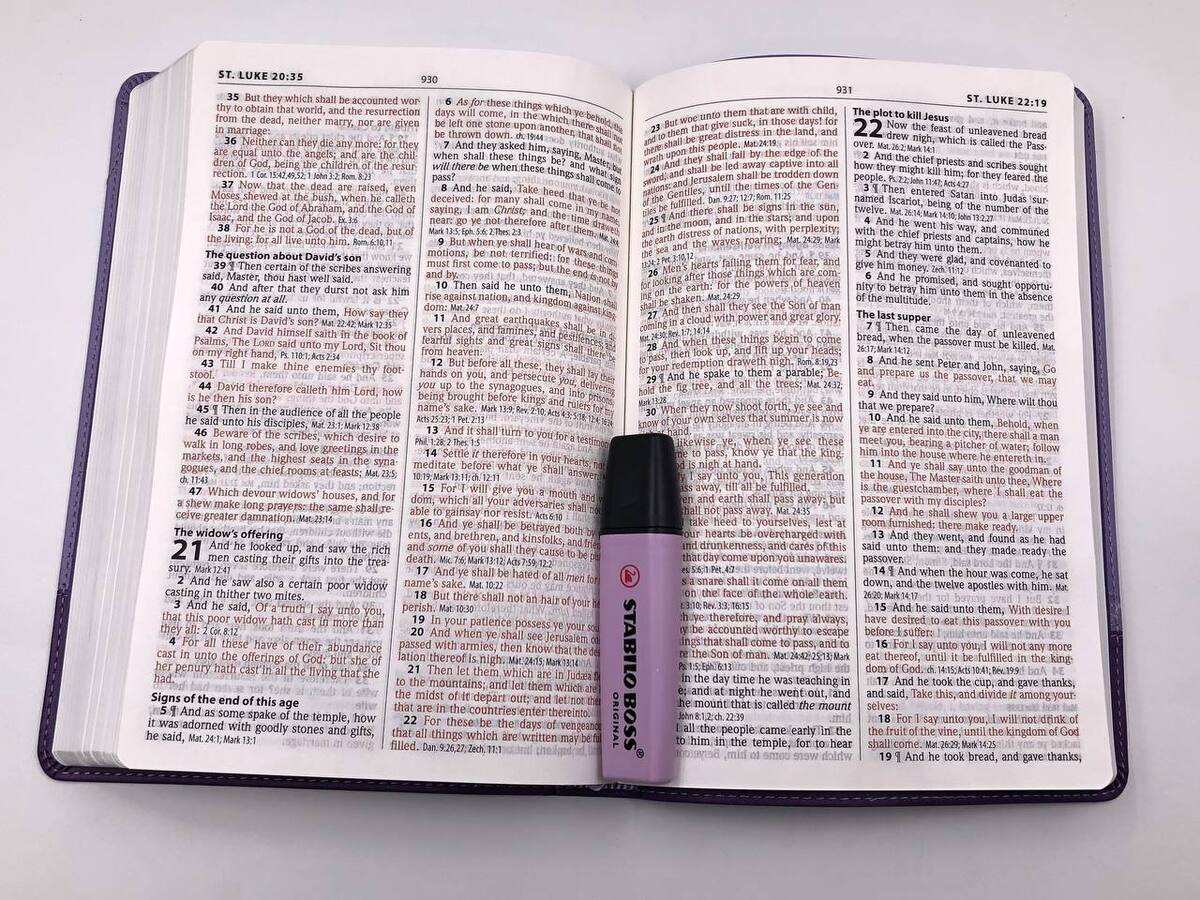 ST. LUKE 20:35
930
35 But they which shall be accounted wor-
thy to obtain that world, and the resurrection
from the dead, neither marry, nor are given
in marriage:
36 Neither can they die any more: for they
are equal unto the angels; and are the chil-
dren of God, being the children of the resur-
rection. 1 Cor. 15:42,49,52; 1 John 3:2; Rom. 8:23
37 Now that the dead are raised, even
Moses shewed at the bush, when he calleth
the Lord the God of Abraham, and the God of
Isaac, and the God of Jacob. Ex. 3:6
38 For he is not a God of the dead, but of
the living: for all live unto him. Rom. 6:10,11
The question about David's son
39 ¶ Then certain of the scribes answering
said, Master, thou hast well said.
40 And after that they durst not ask him
any question at all.
41 And he said unto them, How say they
that Christ is David's son? Mat. 22:42; Mark 12:35
42 And David himself saith in the book of
Psalms, The LORD said unto my Lord, Sit thou
on my right hand, Ps. 110:1; Acts 2:34
43 Till I make thine enemies thy foot-
stool.
44 David therefore calleth him Lord, how
is he then his son?
45 ¶ Then in the audience of all the people
he said unto his disciples, Mat. 23:1; Mark 12:38
46 Beware of the scribes, which desire to
walk in long robes, and love greetings in the
markets, and the highest seats in the syna-
gogues, and the chief rooms at feasts; Mat. 23:5;
ch. 11:43
47 Which devour widows' houses, and for
a shew make long prayers: the same shall re-
ceive greater damnation. Mat. 23:14
The widow's offering
21 And he looked up, and saw the rich
men casting their gifts into the trea-
sury. Mark 12:41
2 And he saw also a certain poor widow
casting in thither two mites.
3 And he said, Of a truth I say unto you,
that this poor widow hath cast in more than
they all: 2 Cor. 8:12
4 For all these have of their abundance
cast in unto the offerings of God: but she of
her penury hath cast in all the living that she
had.
Signs of the end of this age
5 ¶ And as some spake of the temple, how
it was adorned with goodly stones and gifts,
he said, Mat. 24:1; Mark 13:1
6 As for these things which ye behold, the
days will come, in the which there shall not
be left one stone upon another, that shall not
be thrown down. ch. 19:44
7 And they asked him, saying, Master, but
when shall these things be? and what sign
will there be when these things shall come to
pass?
8 And he said, Take heed that ye be not
deceived: for many shall come in my name,
saying, I am Christ; and the time draweth
near: go ye not therefore after them. Mat. 24:4;
Mark 13:5; Eph. 5:6; 2 Thes. 2:3
9 But when ye shall hear of wars and com-
motions, be not terrified: for these things
must first come to pass; but the end is not by
and by.
10 Then said he unto them, Nation shall
rise against nation, and kingdom against king-
dom: Mat. 24:7
11 And great earthquakes shall be in di-
vers places, and famines, and pestilences; and
fearful sights and great signs shall there be
from heaven.
12 But before all these, they shall lay their
hands on you, and persecute you, delivering
you up to the synagogues, and into prisons,
being brought before kings and rulers for my
name's sake. Mark 13:9; Rev. 2:10; Acts 4:3; 5:18; 12:4; 16:24
Acts 25:23; 1 Pet. 2:13
13 And it shall turn to you for a testimony.
Phil. 1:28; 2 Thes. 1:5
14 Settle it therefore in your hearts, not
meditate before what ye shall answer:
10:19; Mark 13:11; ch. 12:11
15 For I will give you a mouth and
dom, which all your adversaries shall not
able to gainsay nor resist. Acts 6:10
16 And ye shall be betrayed both by
ents, and brethren, and kinsfolks, and friends;
and some of you shall they cause to be put
death. Mic. 7:6; Mark 13:12; Acts 7:59; 12:2
17 And ye shall be hated of all men for
name's sake. Mat. 10:22
18 But there shall not an hair of your head
perish. Mat. 10:30
19 In your patience possess ye your
20 And when ye shall see Jerusalem
passed with armies, then know that the
lation thereof is nigh. Mat. 24:15; Mark 13:14
21 Then let them which are in Judæa
to the mountains; and let them which are
the midst of it depart out; and let not them
that are in the countries enter thereinto.
22 For these be the days of vengeance,
that all things which are written may be
filled. Dan. 9:26,27; Zech. 11:1
931
ST. LUKE 22:19
23 But woe unto them that are with child,
and to them that give suck, in those days! for
there shall be great distress in the land, and
wrath upon this people. Mat. 24:19
24 And they shall fall by the edge of the
sword, and shall be led away captive into all
nations: and Jerusalem shall be trodden down
of the Gentiles, until the times of the Gen-
tiles be fulfilled. Dan. 9:27; 12:7; Rom. 11:25
25 ¶ And there shall be signs in the sun,
and in the moon, and in the stars; and upon
the earth distress of nations, with perplexity;
the sea and the waves roaring; Mat. 24:29; Mark
13:24; 2 Pet. 3:10,12
26 Men's hearts failing them for fear, and
for looking after those things which are com-
ing on the earth: for the powers of heaven
shall be shaken. Mat. 24:29
27 And then shall they see the Son of man
coming in a cloud with power and great glory.
Mat. 24:30; Rev. 1:7; 14:14
28 And when these things begin to come
to pass, then look up, and lift up your heads;
for your redemption draweth nigh. Rom. 8:19,23
29 ¶ And he spake to them a parable; Be-
hold the fig tree, and all the trees; Mat. 24:32;
Mark 13:28
30 When they now shoot forth, ye see and
know of your own selves that summer is now
hand.
likewise ye, when ye see these
to pass, know ye that the king-
God is nigh at hand.
I say unto you, This generation
pass away, till all be fulfilled.
and earth shall pass away: but
shall not pass away. Mat. 24:35
take heed to yourselves, lest at
hearts be overcharged with
and drunkenness, and cares of this
that day come upon you unawares.
5:6; 1 Pet. 4:7
a snare shall it come on all them
on the face of the whole earth.
3:10; Rev. 3:3; 16:15
ye therefore, and pray always,
be accounted worthy to escape
things that shall come to pass, and to
the Son of man. Mat. 24:42; 25:13; Mark
Ps. 1:5; Eph. 6:13
in the day time he was teaching in
and at night he went out, and
the mount that is called the mount
John 8:1,2; ch. 22:39
all the people came early in the
to him in the temple, for to hear
The plot to kill Jesus
22 Now the feast of unleavened bread
drew nigh, which is called the Pass-
over. Mat. 26:2; Mark 14:1
2 And the chief priests and scribes sought
how they might kill him; for they feared the
people. Ps. 2:2; John 11:47; Acts 4:27
3 ¶ Then entered Satan into Judas sur-
named Iscariot, being of the number of the
twelve. Mat. 26:14; Mark 14:10; John 13:2,27
4 And he went his way, and communed
with the chief priests and captains, how he
might betray him unto them.
5 And they were glad, and covenanted to
give him money. Zech. 11:12
6 And he promised, and sought opportu-
nity to betray him unto them in the absence
of the multitude.
The last supper
7 ¶ Then came the day of unleavened
bread, when the passover must be killed. Mat.
26:17; Mark 14:12
8 And he sent Peter and John, saying, Go
and prepare us the passover, that we may
eat.
9 And they said unto him, Where wilt thou
that we prepare?
10 And he said unto them, Behold, when
ye are entered into the city, there shall a man
meet you, bearing a pitcher of water; follow
him into the house where he entereth in.
11 And ye shall say unto the goodman of
the house, The Master saith unto thee, Where
is the guestchamber, where I shall eat the
passover with my disciples?
12 And he shall shew you a large upper
room furnished: there make ready.
13 And they went, and found as he had
said unto them: and they made ready the
passover.
14 ¶ And when the hour was come, he sat
down, and the twelve apostles with him. Mat.
26:20; Mark 14:17
15 And he said unto them, With desire I
have desired to eat this passover with you
before I suffer:
16 For I say unto you, I will not any more
eat thereof, until it be fulfilled in the king-
dom of God. ch. 14:15; Acts 10:41; Rev. 19:9
17 And he took the cup, and gave thanks,
and said, Take this, and divide it among your-
selves:
18 For I say unto you, I will not drink of
the fruit of the vine, until the kingdom of God
shall come. Mat. 26:29; Mark 14:25
19 ¶ And he took bread, and gave thanks,
STABILO BOSS®
ORIGINAL